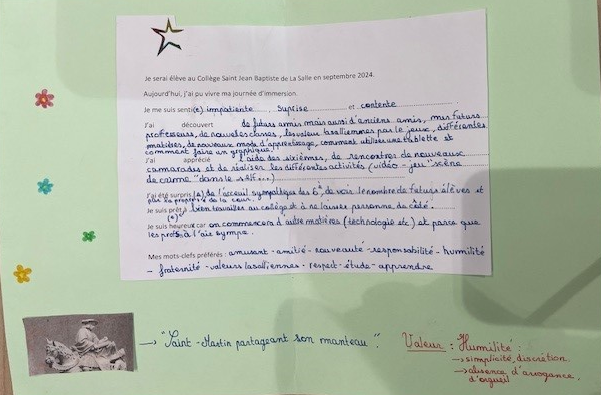 Je serai élève au Collège Saint Jean Baptiste de La Salle en septembre 2024.
Aujourd'hui, j'ai pu vivre ma journée d'immersion.
Je me suis senti(e) impatiente, suprise et contente
J'ai découvert de futurs amis mais aussi d'anciens amis, mes futurs
professeurs, de nouvelles classes, les valeurs lasalliennes par le jeux, différentes
matières, de nouveaux mode d'apprentissage, comment utiliser une tablette et
comment faire un graphique!
J'ai apprécié l'aide des sixièmes, de rencontrer de nouveaux
camarades et de réaliser les différentes activités (vidéo - jeu "scène
de crime" dans le self...)
J'ai été surpris(e) de l'acceuil sympathique des 6e, de voir le nombre de futurs élèves et
par la propreté de la cour.
Je suis prêt(e) à bien travailler au collège et à ne laisser personne de côté.
Je suis heureux car on commencera d'autre matières (technologie etc) et parce que
les profs à l'air sympa.
Mes mots-clefs préférés : amusant - amitié - nouveauté - responsabilité - humilité
- fraternité - valeurs lasalliennes - respect - étude - apprendre
→ "Saint-Martin partageant son manteau".
Valeur : Humilité :
→ simplicité, discrétion
→ absence d'arrogance,
d'orgueil